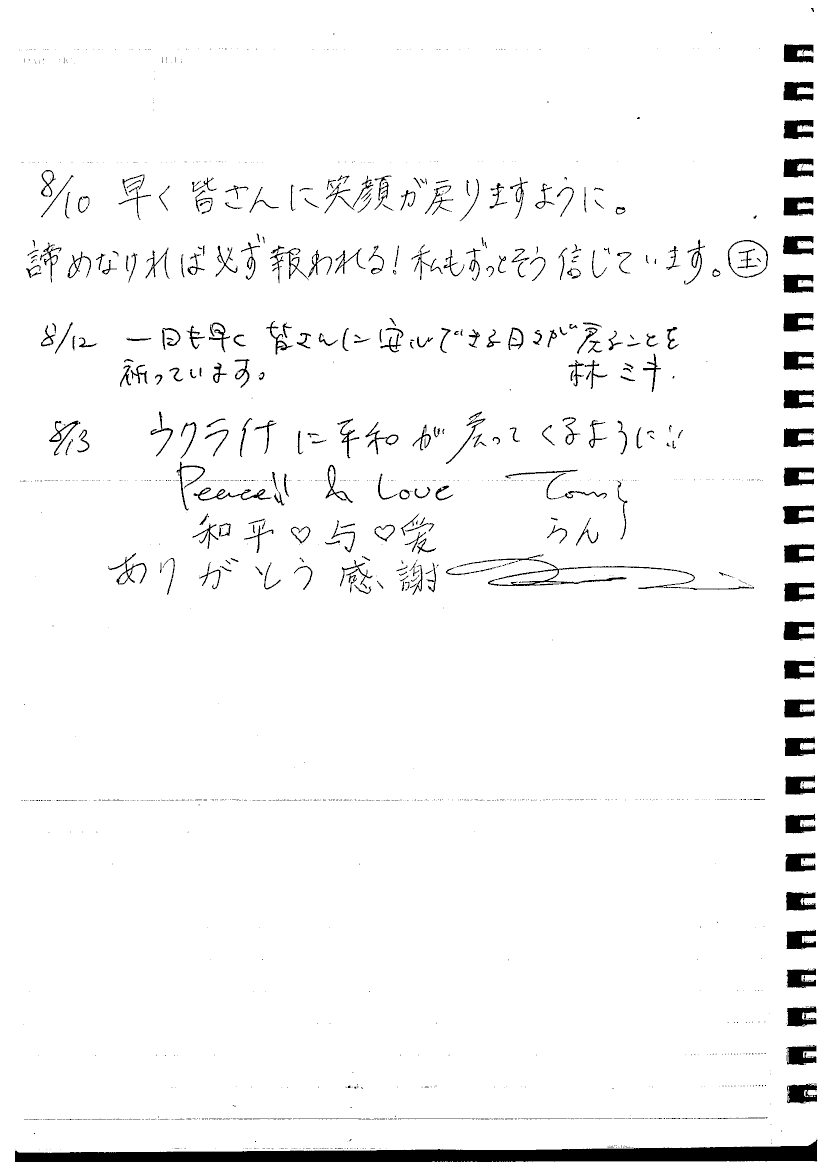 8/10 早く皆さんに笑顔が戻りますように。
諦めなければ必ず報われる!私もずっとそう信じています。玉
8/12 一日も早く皆さんに安心できる日々が戻ることを
祈っています。 林 ミキ.
8/13 ウクライナに平和が戻ってくるように!!
Peace!! & Love Tom
和平♡与♡愛 らん
ありがとう 感謝